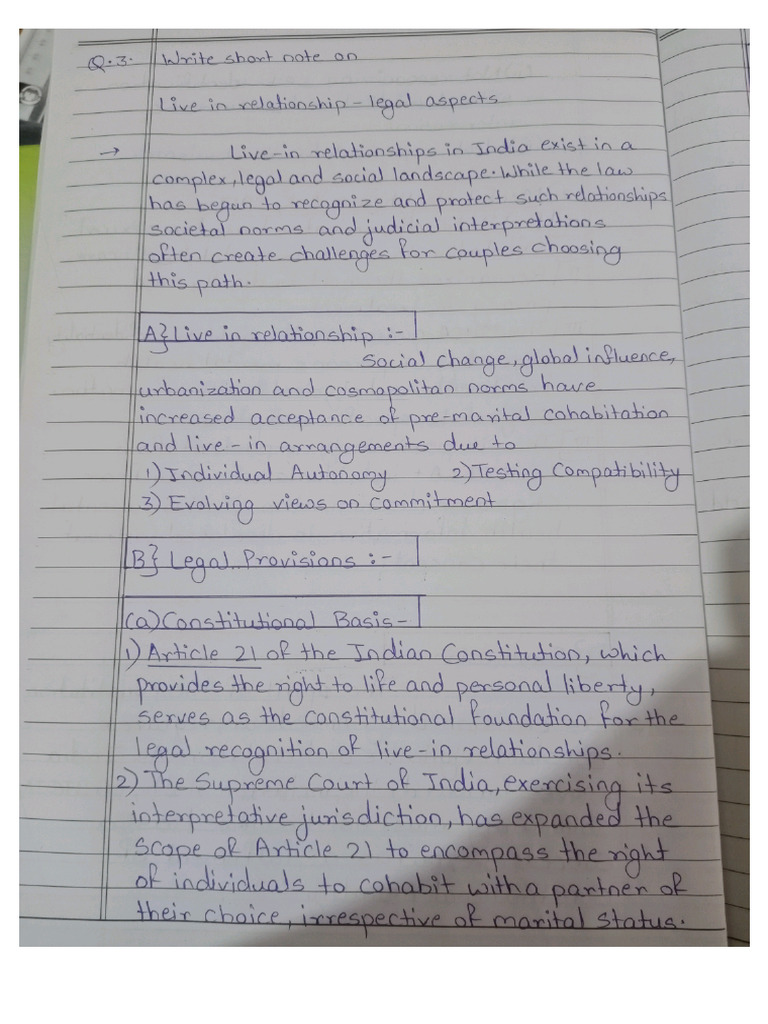 Q.3. Write short note on
Live in relationship - legal aspects
→ Live-in relationships in India exist in a
complex, legal and social landscape. While the law
has begun to recognize and protect such relationships
societal norms and judicial interpretations
often create challenges for couples choosing
this path.
A} Live in relationship :-
Social change, global influence,
urbanization and cosmopolitan norms have
increased acceptance of pre-marital cohabitation
and live-in arrangements due to
1) Individual Autonomy 2) Testing Compatibility
3) Evolving views on commitment
B} Legal Provisions :-
(a) Constitutional Basis-
1) Article 21 of the Indian Constitution, which
provides the right to life and personal liberty,
serves as the constitutional foundation for the
legal recognition of live-in relationships.
2) The Supreme Court of India, exercising its
interpretative jurisdiction, has expanded the
scope of Article 21 to encompass the right
of individuals to cohabit with a partner of
their choice, irrespective of marital status.